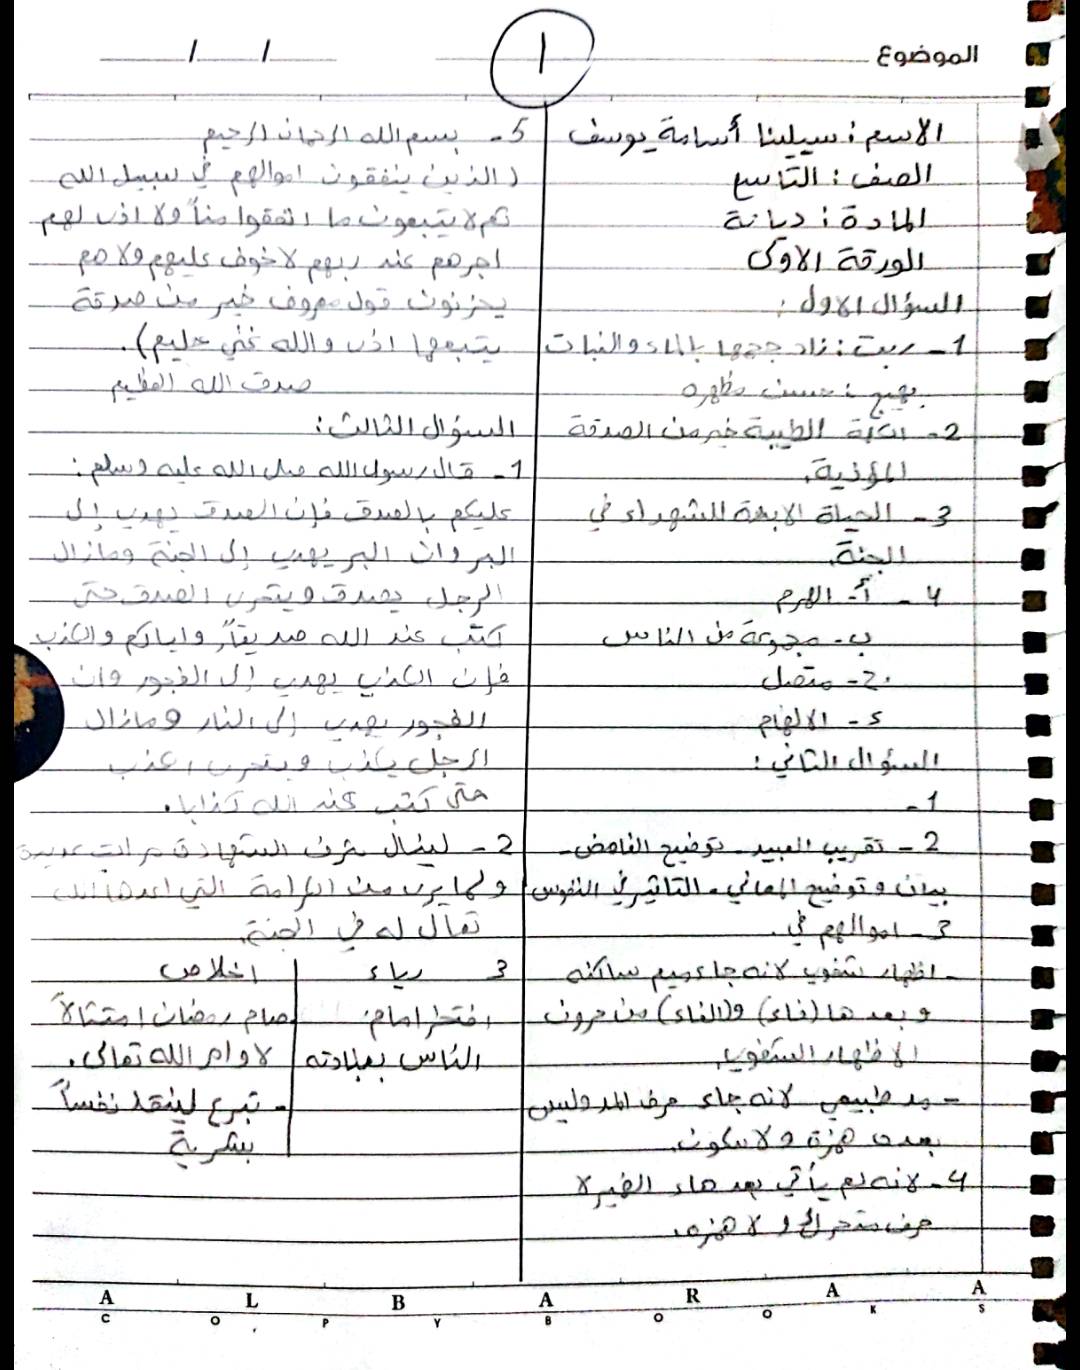 الموضوع
/ /
1
الاسم: سيلينا أسامة يوسف
الصف: التاسع
المادة: ديانة
الورقة الاولى
السؤال الاول:
1- ربت: زاد حجمها بالماء والنبات
بهيج: حسن مظهره
2- الكلمة الطيبة خير من الصدقة
المؤذية.
3- الحياة الابدية للشهداء في
الجنة.
4- أ- الهرم
ب- مجموعة من الناس
ج- متصل
د- الالهام
السؤال الثاني:
1-
2- تقريب البعيد- توضيح الغامض-
بيان وتوضيح المعاني- التاثير في النفوس
3- اموالهم في.
- اظهار شفوي لانه جاء ميم ساكنه
وبعدها (فاء) و(الفاء) من حروف
الاظهار الشفوي.
- مد طبيعي لانه جاء حرف المد وليس
بعده همزة ولا سكون.
4- لانه لم يأتي بعد هاء الضمير لا
حرف متحرك ولا همزه.
5- بسم الله الرحمان الرحيم
(الذين ينفقون اموالهم في سبيل الله
ثم لا يتبعون ما انفقوا مناً ولا اذى لهم
اجرهم عند ربهم لا خوف عليهم ولا هم
يحزنون قول معروف خير من صدقة
يتبعها اذى والله غني حليم).
صدق الله العظيم
السؤال الثالث:
1- قال رسول الله صلى الله عليه وسلم:
عليكم بالصدق فإن الصدق يهدي إلى
البر وان البر يهدي إلى الجنة ومازال
الرجل يصدق ويتحرى الصدق حتى
اكتب عند الله صديقاً، واياكم والكذب
فإن الكذب يهدي إلى الفجور وان
الفجور يهدي إلى النار ومازال
الرجل يكذب ويتحرى الكذب
حتى كتب عند الله كذابا.
2- لينال شرف الشهادة مرات عديدة
ولما يرى من الكرامة التي اعدها الله
تعالى له في الجنة.
3 رياء | اخلاص
افتخر امام | صام رمضان امتثالاً
الناس بعبادته | لاوامر الله تعالى.
- تبرع لينقذ نفساً
بشرية
A L B A R A A
C O P Y B O O K S